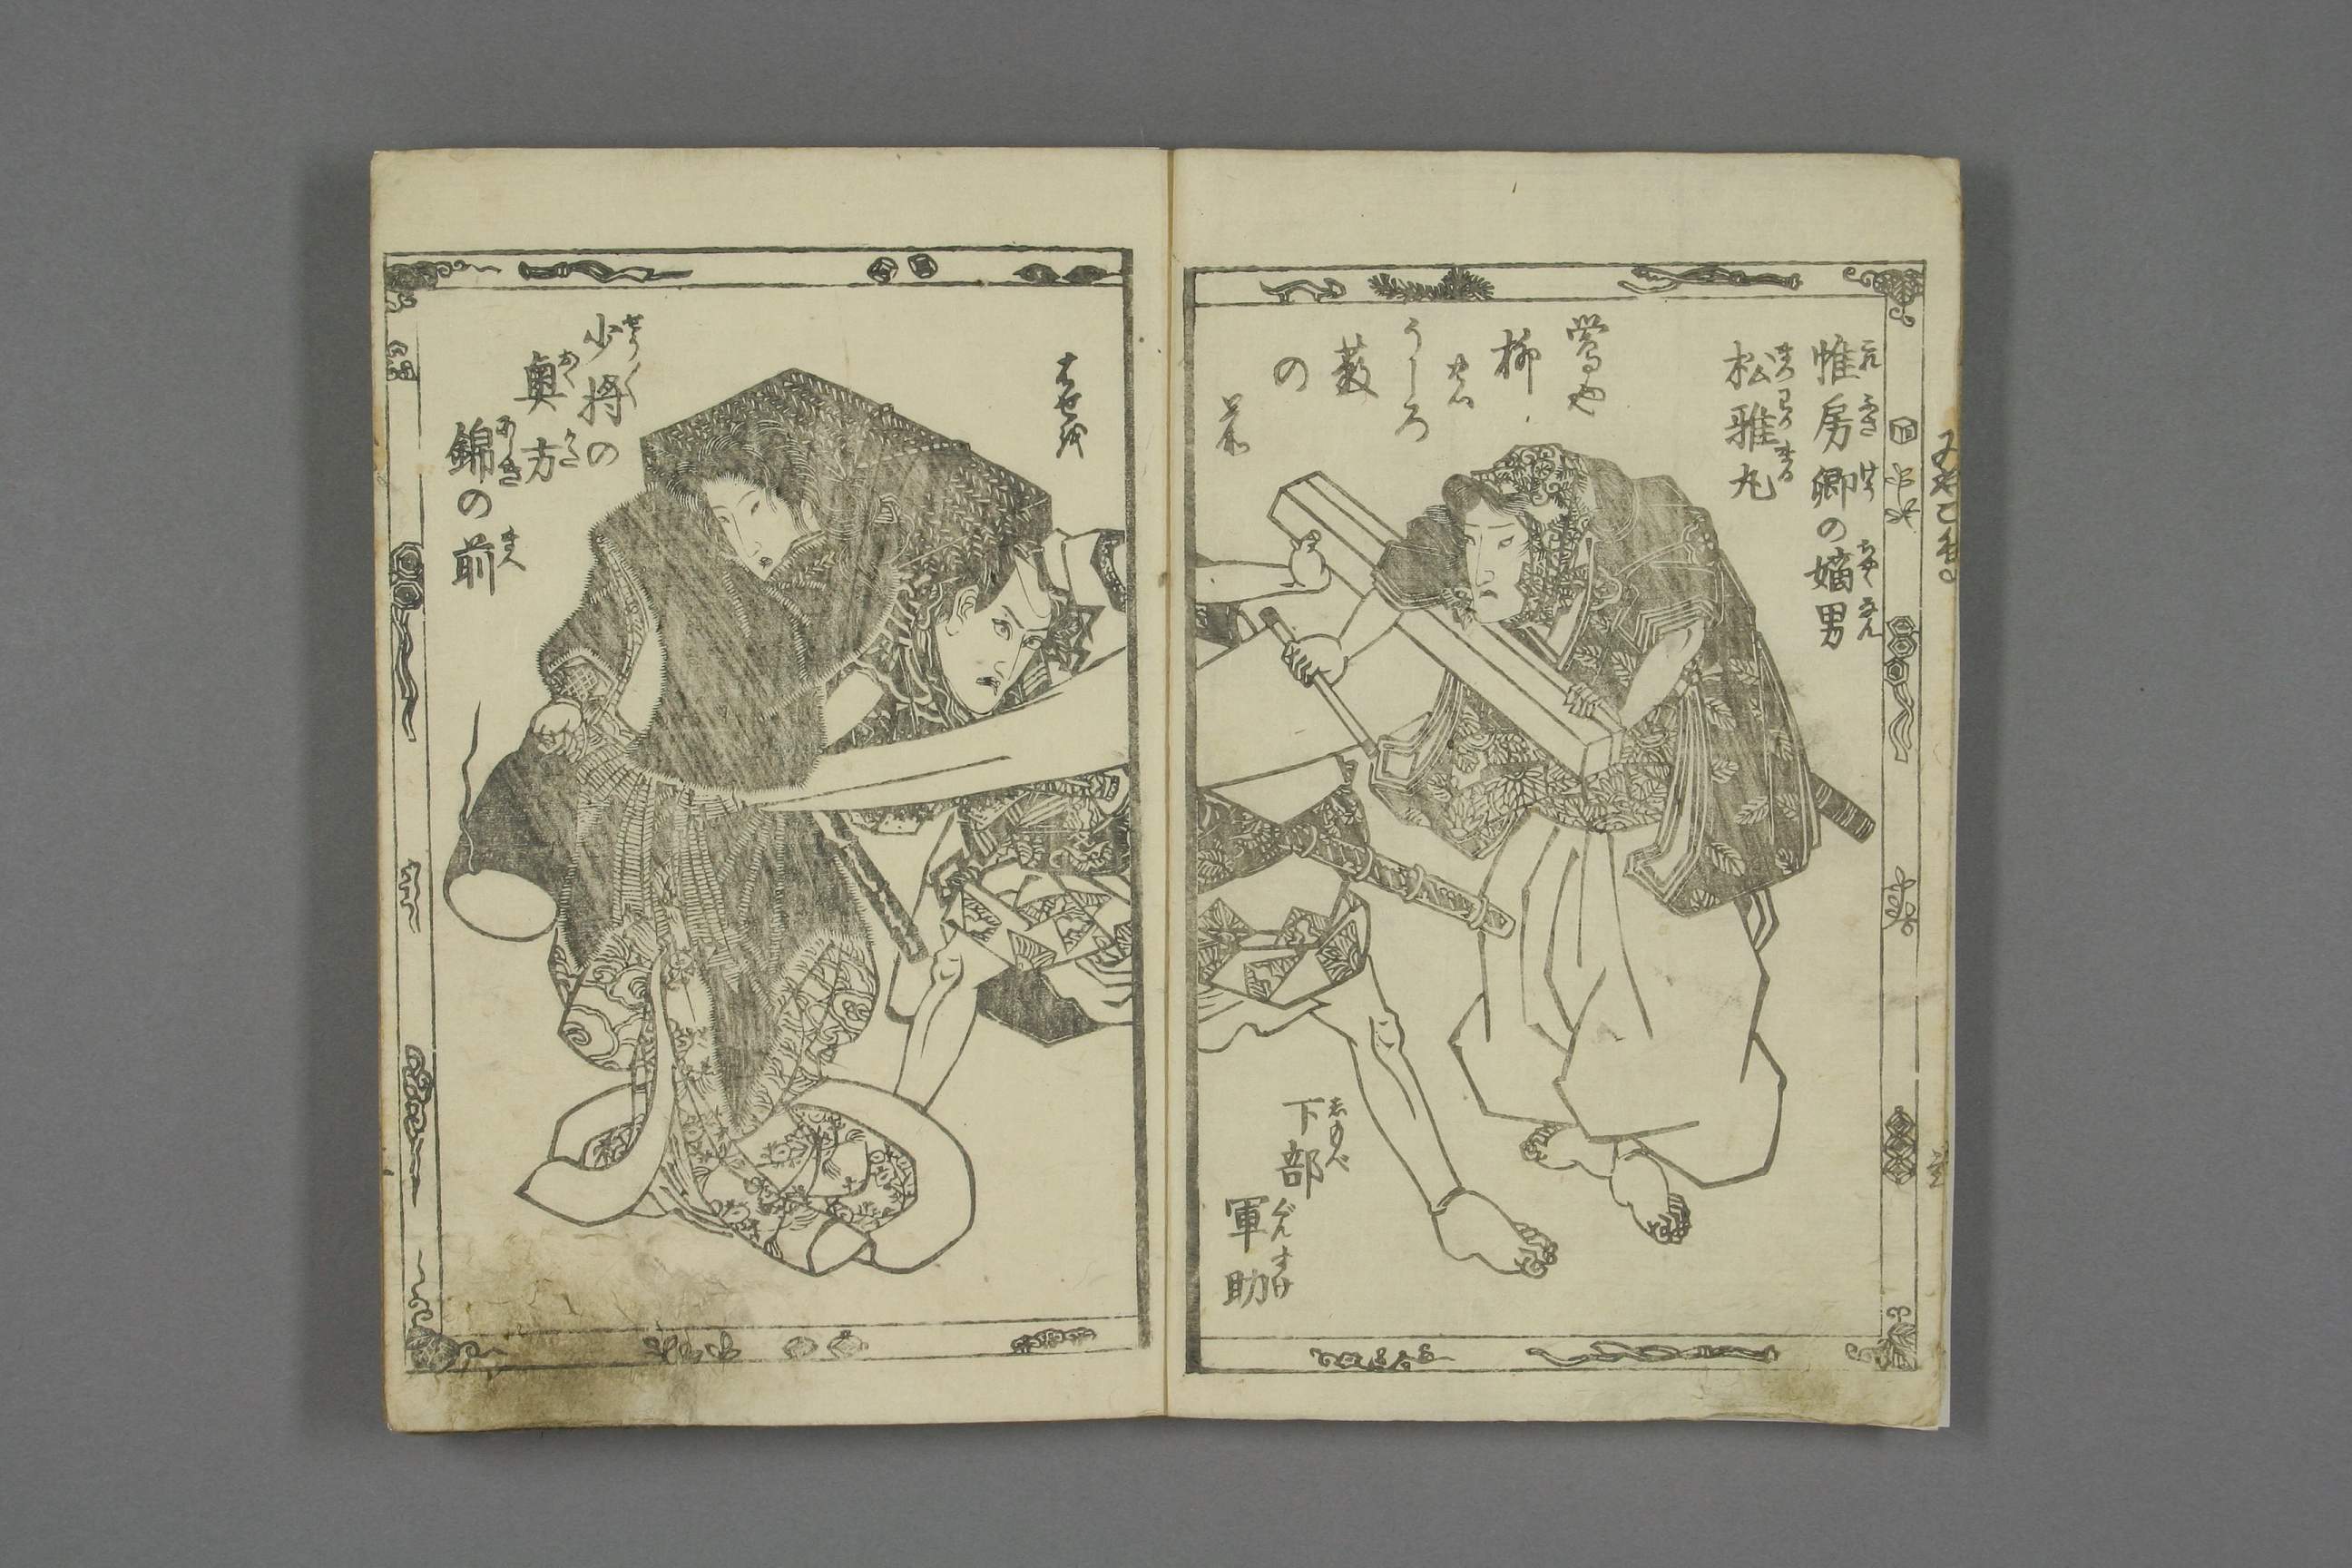 惟房卿の嫡男
松稚丸
鶯や
柳
の
うしろ
藪
の
前
下部
軍助
はせを
少将の
奥方
錦の前